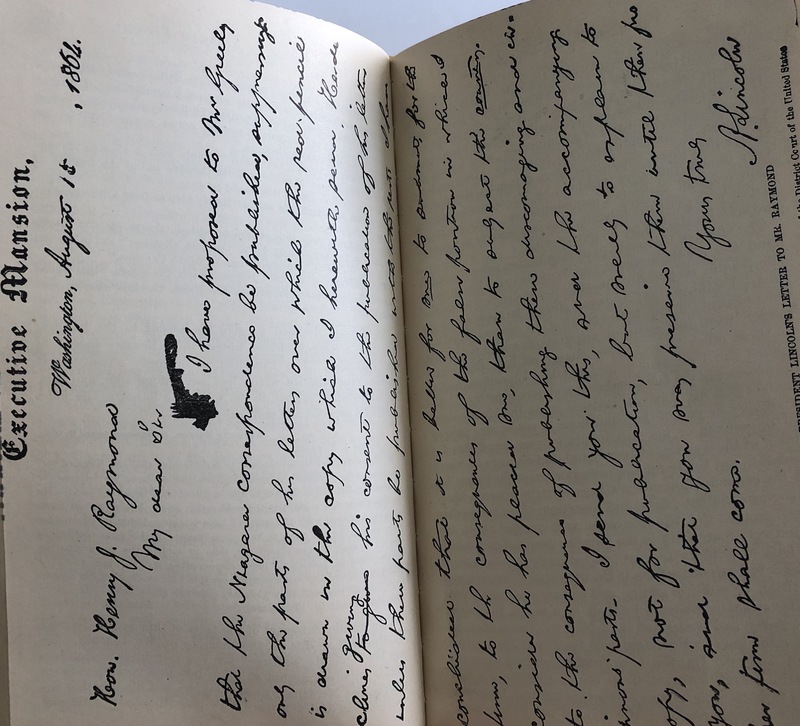 Executive Mansion,
Washington, August 15, 1864.
Hon. Henry J. Raymond
My dear Sir
I have proposed to Mr Greely
that the Niagara correspondence be published, suppressing
only the parts of his letters over which the red pencil
is drawn in the copy which I herewith send. He de
clines giving his consent to the publication of his letters
unless these parts be published with the rest. I have
concluded that it is better for me to submit, for the
time, to the consequences of the false position in which I
consider he has placed me, than to subject the country,
to the consequences of publishing these discouraging and in=
jurious parts. I send you this, and the accompanying
copy, not for publication, but merely to explain to
you, and that you may preserve them until their pro
per time shall come.
Yours truly
A. Lincoln
PRESIDENT LINCOLN'S LETTER TO MR. RAYMOND
District Court of the United States